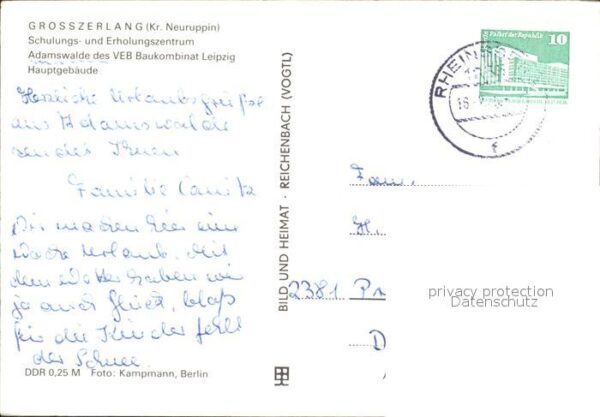 GROSSZERLANG (Kr. Neuruppin)
Schulungs- und Erholungszentrum
Adamswalde des VEB Baukombinat Leipzig
Hauptgebäude
Herzliche Urlaubsgrüße
aus Adamswalde
sendet Ihnen
Familie
Wir machen hier eine
Woche Urlaub. Mit
dem Wetter haben wir
ja auch Glück, bloß
für die Kinder fehlt
der Schnee.
DDR 0,25 M Foto: Kampmann, Berlin
BILD UND HEIMAT · REICHENBACH (VOGTL)
Palast der Republik
10
RHEINSB
f
Fam.
H.
2381 Pr
D
privacy protection
Datenschutz